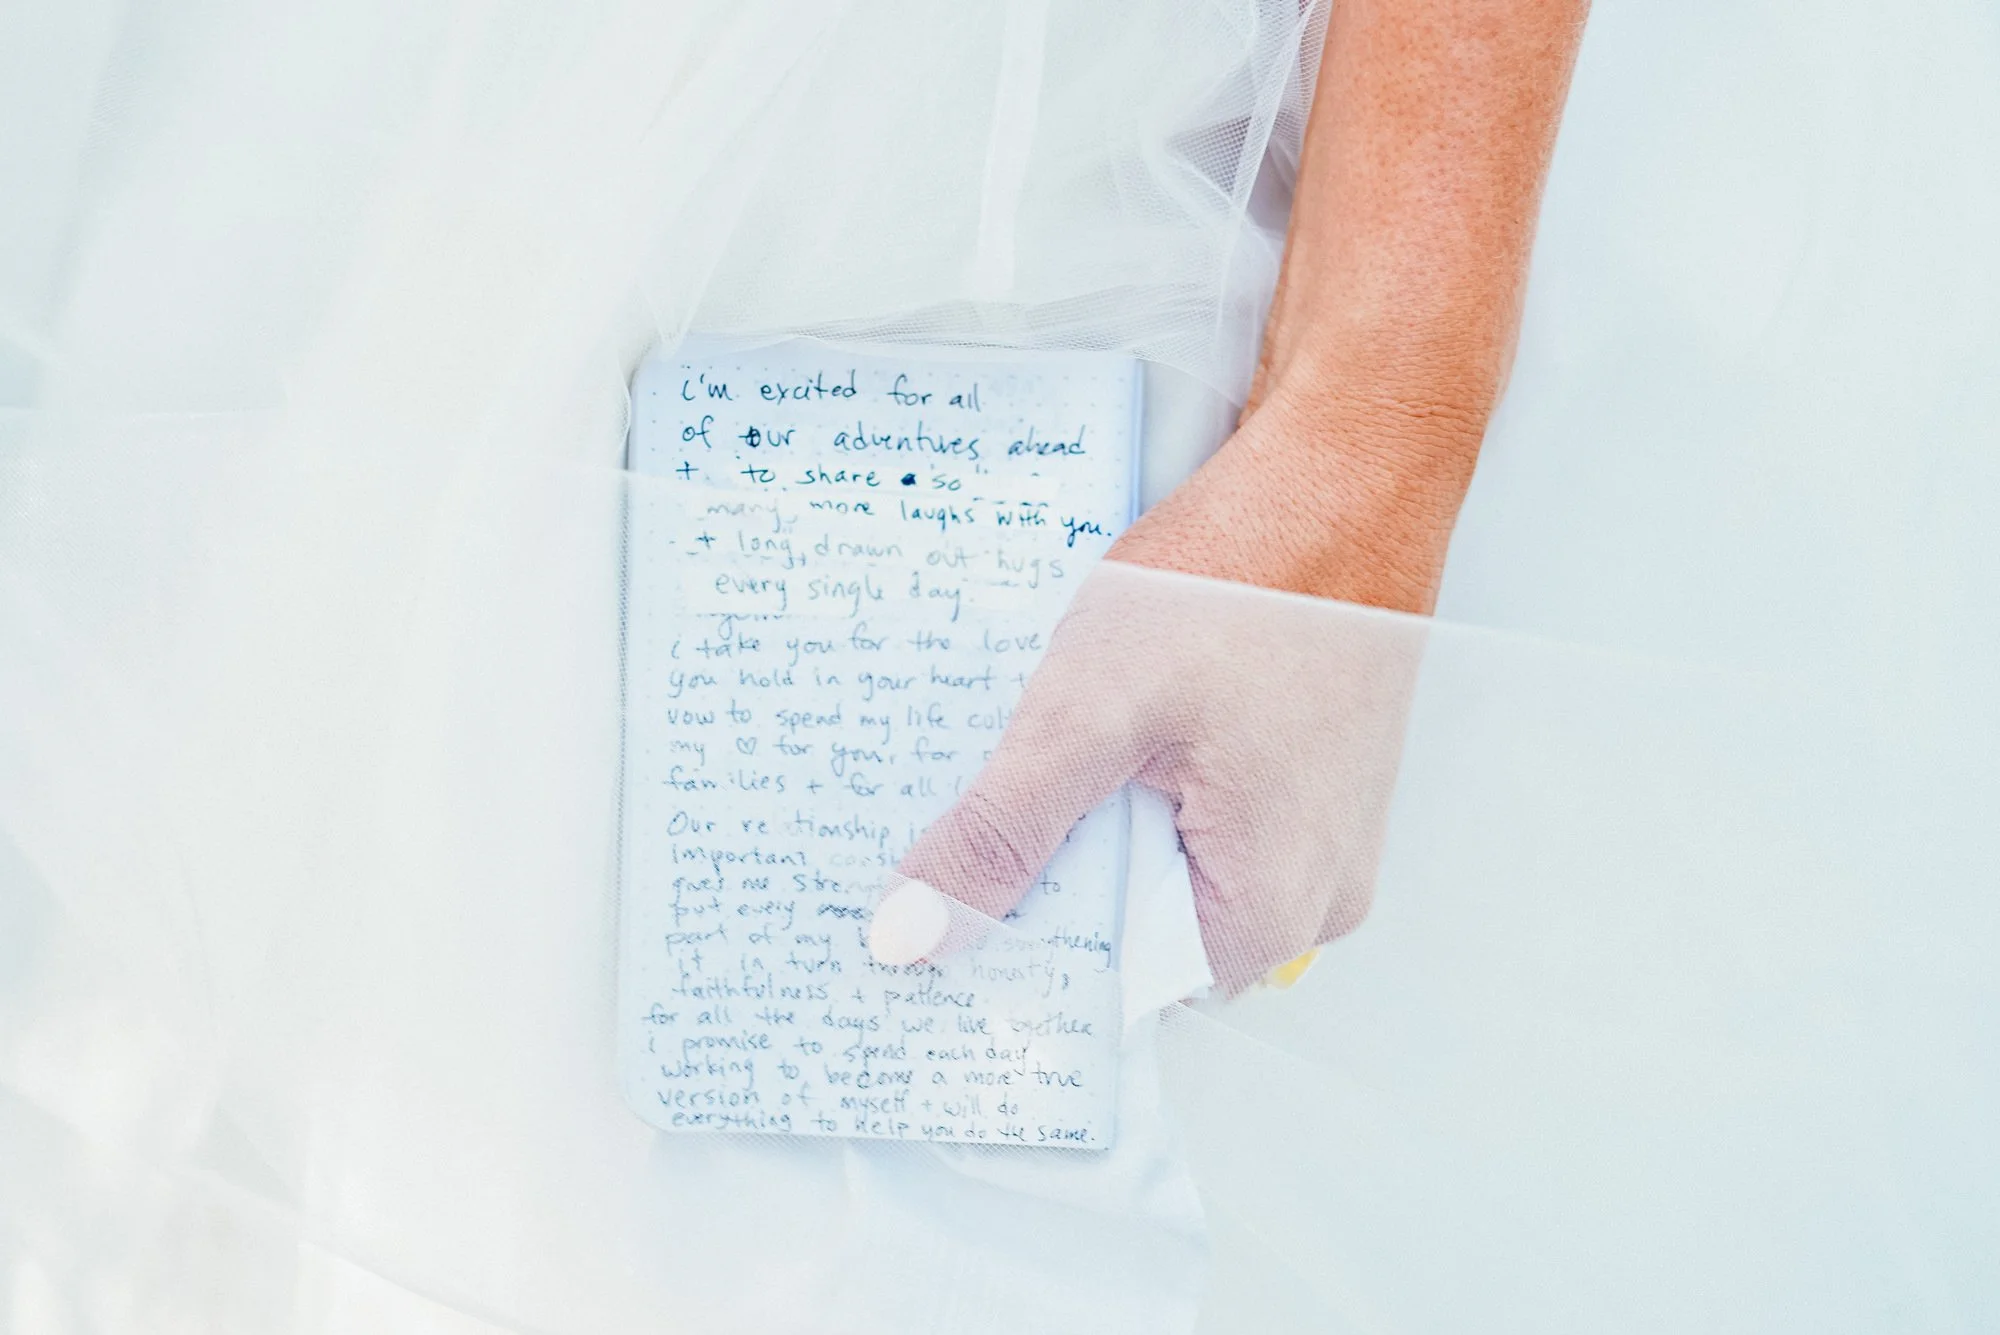 i'm excited for all
of our adventures ahead
+ to share so
many more laughs with you.
+ long, drawn out hugs
every single day.
i take you for the love
you hold in your heart +
vow to spend my life
my ♡ for you, for
families + for all
Our relationship
important
gives me to
put every
part of my strengthening
it in turn through honesty,
faithfulness + patience
for all the days we live together
i promise to spend each day
working to become a more true
version of myself + will do
everything to help you do the same.